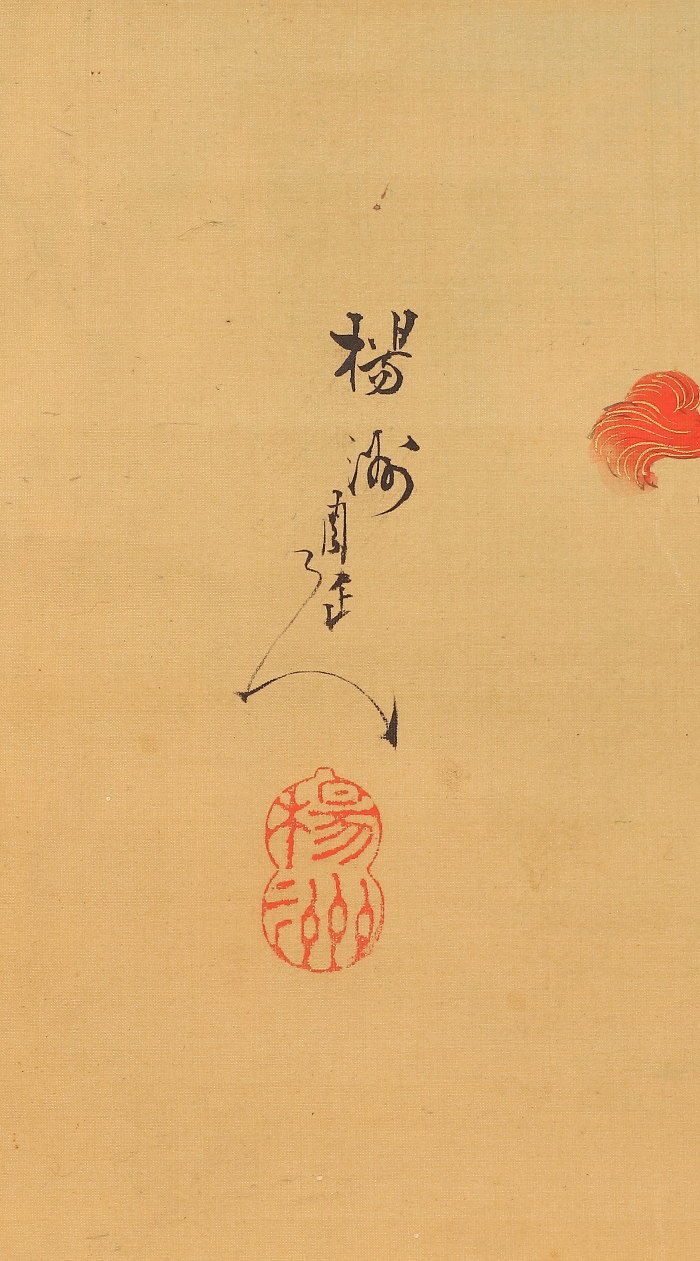 楊洲周延
楊洲